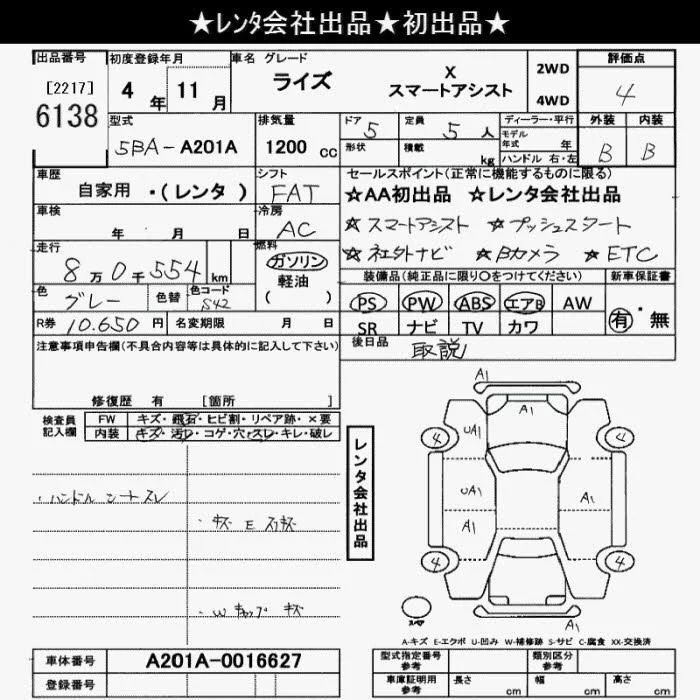 ★レンタ会社出品★初出品★
出品番号 初度登録年月 車名 グレード 評価点
[2217] 4年 11月 ライズ X スマートアシスト 2WD 4WD 4
6138
型式 排気量 ドア 定員 ディーラー・平行 外装 内装
5BA-A201A 1200cc 5 5人 モデル年式 年 B B
形状 積載 kg ハンドル 右・左
車歴 シフト セールスポイント(正常に機能するものに限る)
自家用 ・(レンタ) FAT ☆AA初出品 ☆レンタ会社出品
車検 冷房 ☆スマートアシスト ☆プッシュスタート
年 月 日 AC
走行 燃料 ☆社外ナビ ☆Bカメラ ☆ETC
8万0千554km ガソリン 装備品(純正品に限り○をつけてください) 新車保証書
軽油
( )
色 色替 色コード PS PW ABS エアB AW 有・無
グレー S42
R券 10.650円 名変期限 月 日 SR ナビ TV カワ
注意事項申告欄(不具合内容等は具体的に記入して下さい) 後日品 取説
修復歴 有 [箇所 ]
検査員記入欄 FW キズ・飛石・ヒビ割・リペア跡・×要
内装 キズ・汚レ・コゲ・穴・スレ・キレ・破レ
レンタ会社出品
・ハンドル シートスレ
・W キャップ キズ
A1
A1
4 UA1 4
UA1 A1
A1
4 4
A1
スペア
A-キズ E-エクボ U-凹み W-補修跡 S-サビ C-腐食 XX-交換済
車体番号 A201A-0016627 型式指定番号参考 類別区分参考
登録番号 車庫証明用参考 長さ cm 幅 cm 高さ cm